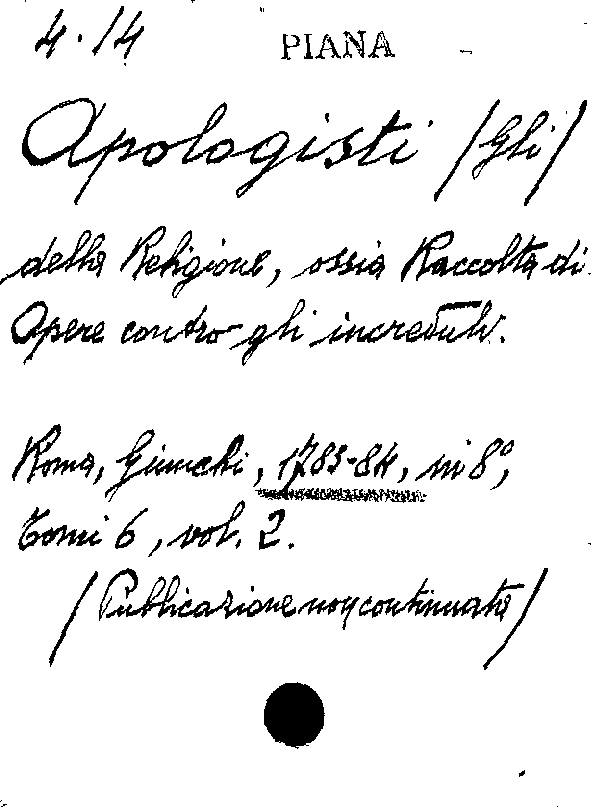 4.14 PIANA
Apologisti /Gli/
della Religione, ossia Raccolta di
Opere contro gli increduli.
Roma, Giunchi, 1783-84, in 8°,
Tomi 6, vol. 2.
/Pubblicazione non continuata/